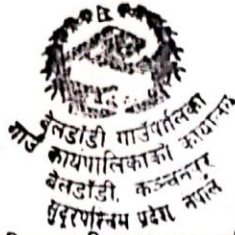 बेलडाँडी गाउँपालिका
गाउँ कार्यपालिकाको कार्यालय
बेलडाँडी, कञ्चनपुर
सुदूरपश्चिम प्रदेश, नेपाल